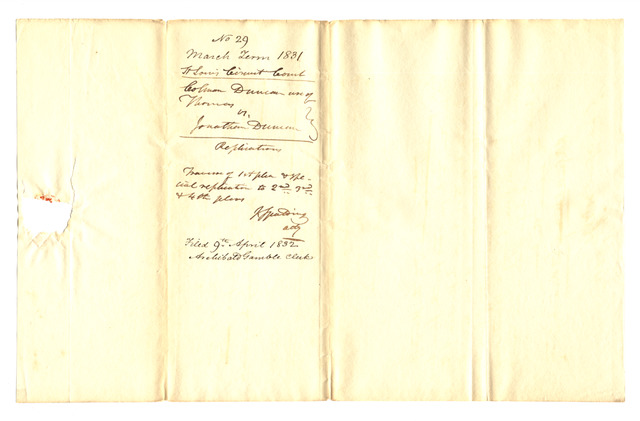 No 29
March Term 1831
St Louis Circuit Court
Colman Duncan use of
Thomas
vs.
Jonathan Duncan
Replications
of 1st plea & spe-
cial replication to 2nd 3rd
& 4th pleas
Spalding
atty
Filed 9th April 1832
Archibald Gamble Clerk